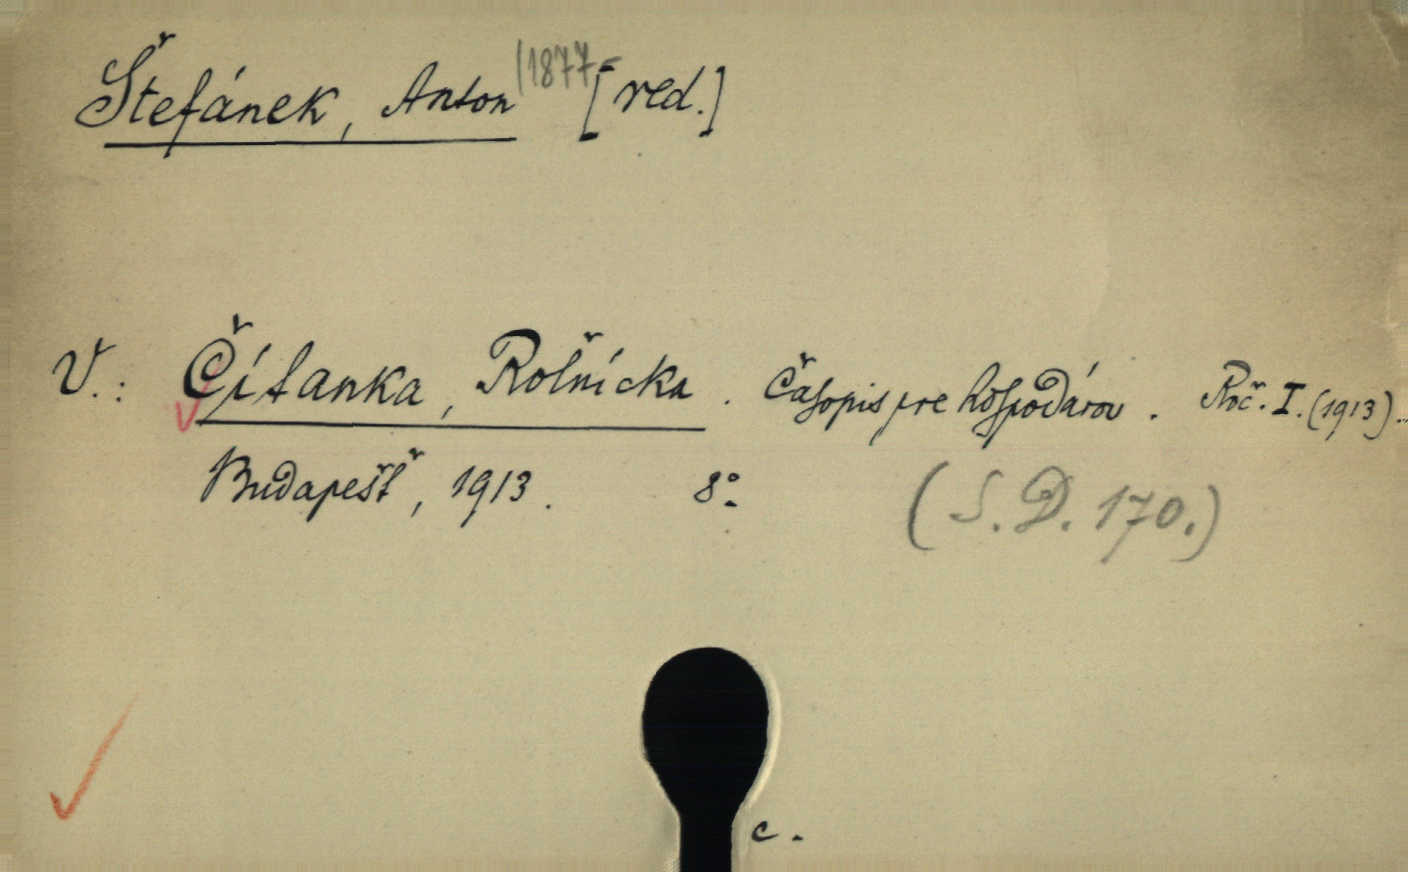 Štefánek, Anton (1877- [red.]
V.: Čítanka, Roľnícka. Časopis pre hospodárov. Roč. I. (1913)..
Budapešť, 1913. 8°.
(S. D. 170.)
c.